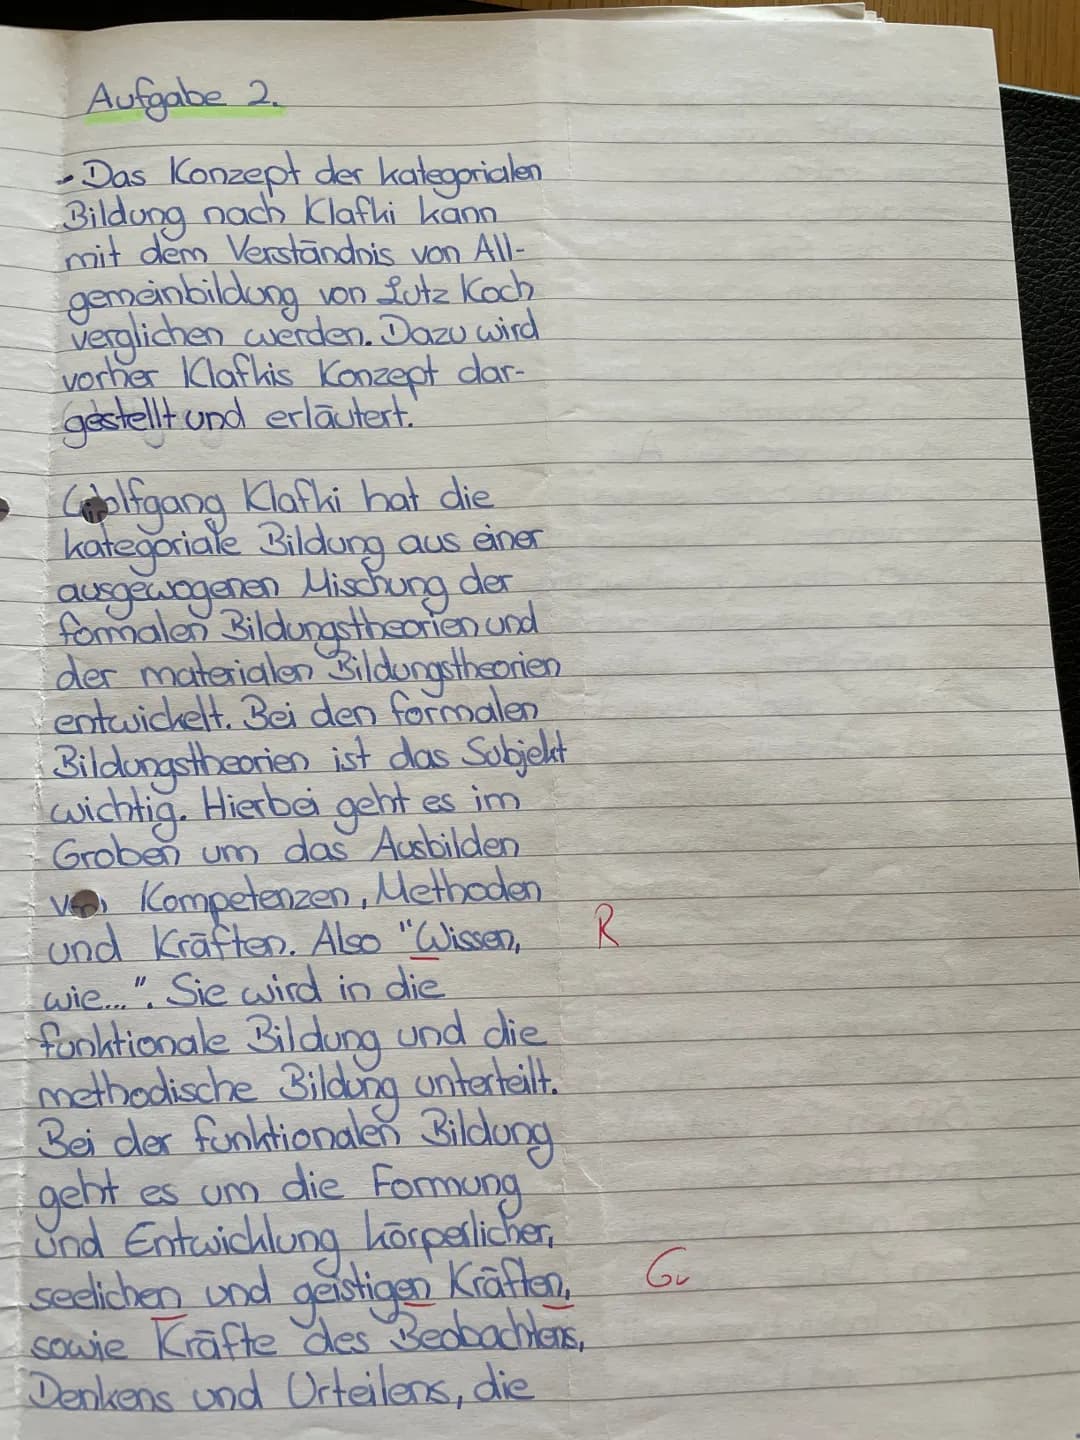 Aufgabe 2.
- Das Konzept der kategorialen
Bildung nach Klafki kann
mit dem Verständnis von All-
gemeinbildung von Lutz Koch
verglichen werden. Dazu wird
vorher Klafkis Konzept dar-
gestellt und erläutert.
Wolfgang Klafki hat die
kategoriale Bildung aus einer
ausgewogenen Mischung der
formalen Bildungstheorien und
der materialen Bildungstheorien
entwickelt. Bei den formalen
Bildungstheorien ist das Subjekt
wichtig. Hierbei geht es im
Groben um das Ausbilden
von Kompetenzen, Methoden
und Kräften. Also "Wissen, R
wie...". Sie wird in die
funktionale Bildung und die
methodische Bildung unterteilt.
Bei der funktionalen Bildung
geht es um die Formung
und Entwicklung körperlicher,
seelichen und geistigen Kräften, Gr
sowie Kräfte des Beobachtens,
Denkens und Urteilens, die